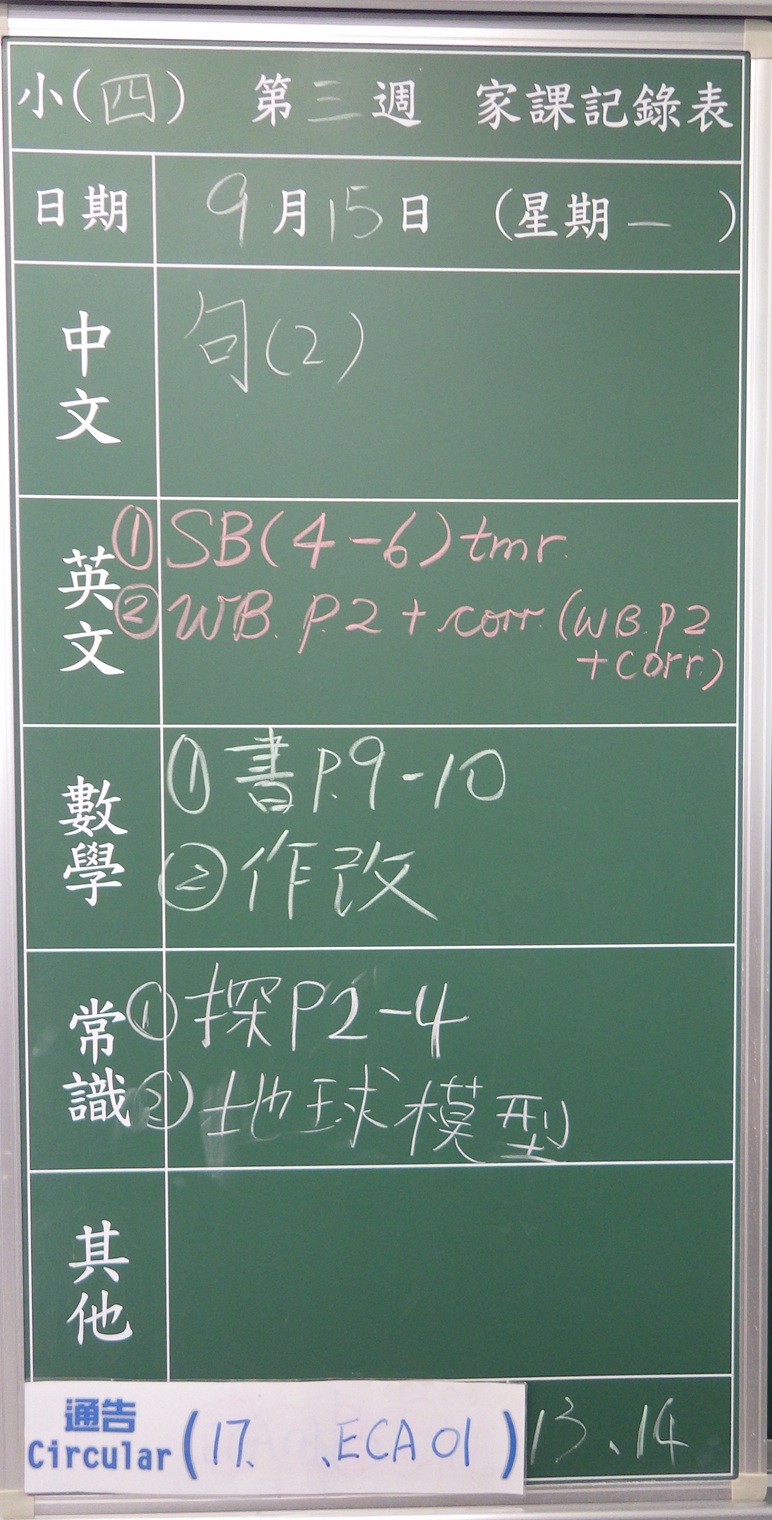 小(四) 第三週 家課記錄表
日期 9月15日 (星期一)
中文 句(2)
英文 ①SB(4-6)tmr.
②WB. P.2 + corr. (WB.P2
+corr.)
數學 ①書P.9-10
②作改
常識 ①探P2-4
②地球模型
其他
通告
Circular (17、 、ECA01) 13、14